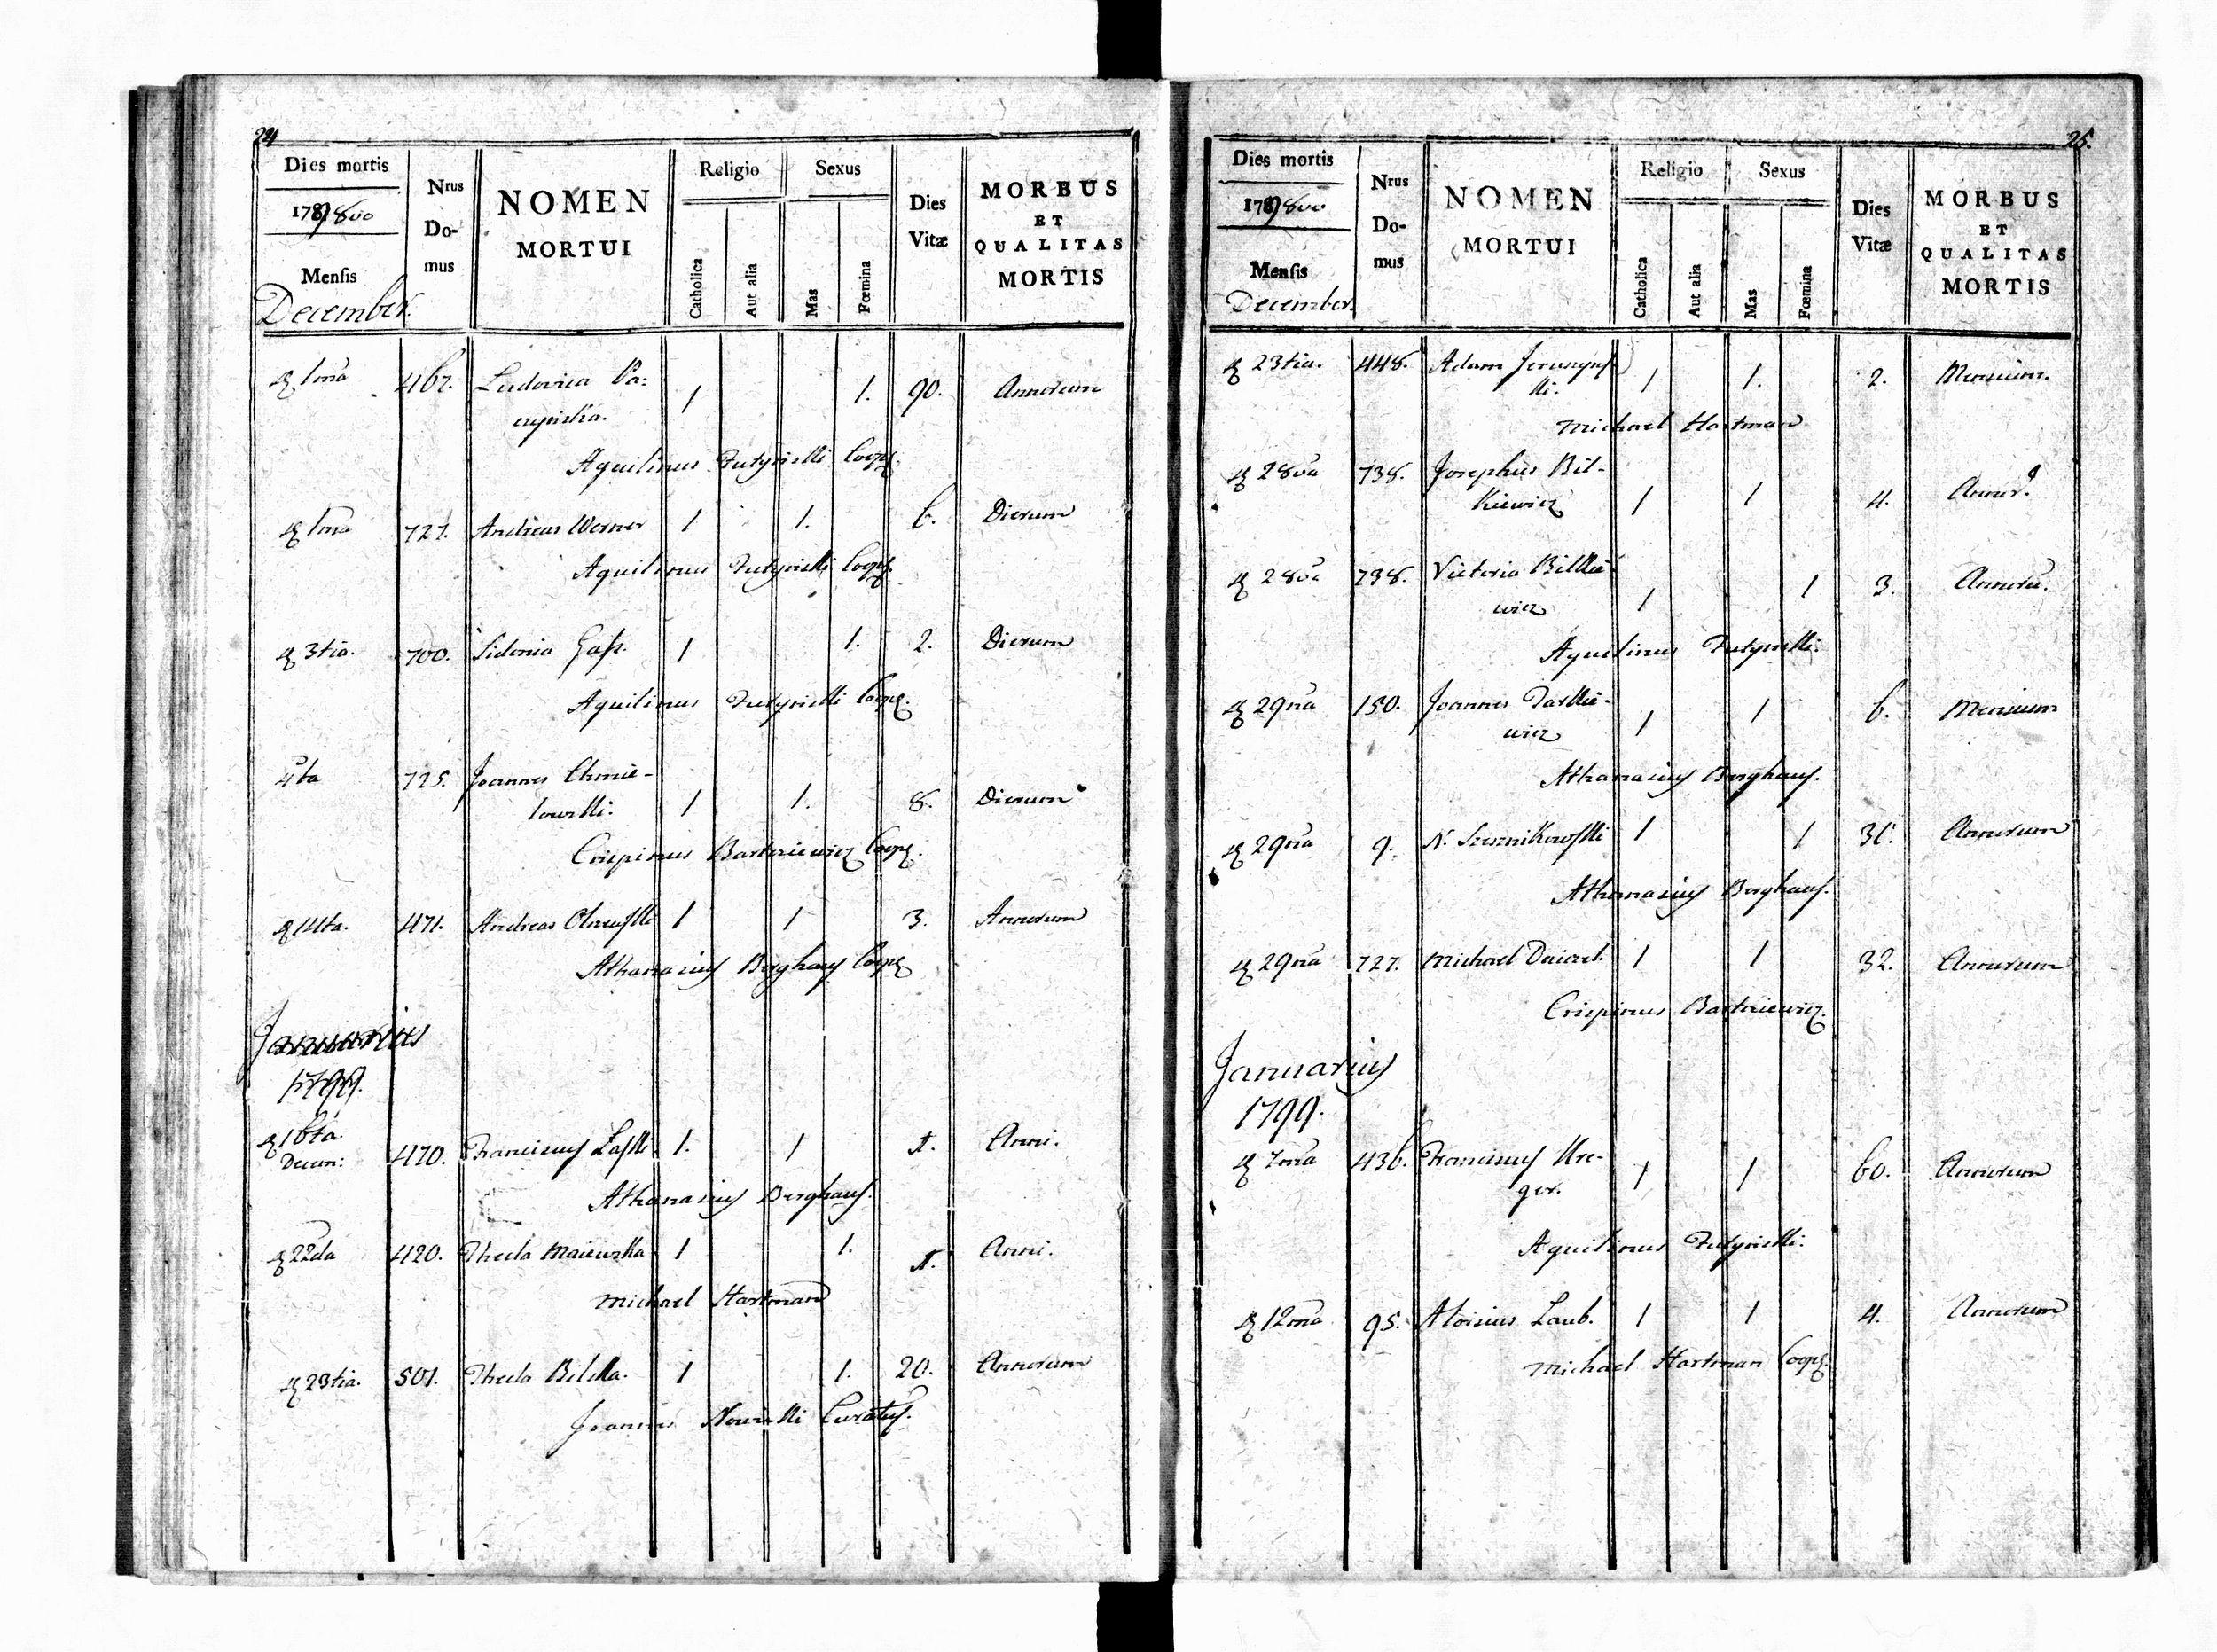 24
Dies mortis
1789 800
Mensis
December.
Nrus
Do-
mus
NOMEN
MORTUI
Religio
Catholica
Aut alia
Sexus
Mas
Fœmina
Dies
Vitæ
MORBUS
ET
QUALITAS
MORTIS
1ma 467. Ludovica 1 1. 90. Annorum
Aquilinus Coop.
1ma 727. Andreas Werner 1 1. 6. Dierum
Aquilinus Coop.
3tia. 700. Sidonia 1 1. 2. Dierum
Aquilinus Coop.
4ta 725. Joannes Chmie-
lowski. 1 1. 8. Dierum
Crispinus Coop.
14ta. 471. Andreas 1 1 3. Annorum
Athanasius Berghaus Coop.
Januarius
1799.
16ta.
Decem: 470. Franciscus Laski 1. 1 1. Anni.
Athanasius Berghaus.
22da 420. Thecla Maiewska 1 1. 1. Anni.
Michael Hartman
23tia. 501. Thecla Bilska. 1 1. 20. Annorum
Joannes Curatus.
25.
Dies mortis
1789 800
Mensis
December.
Nrus
Do-
mus
NOMEN
MORTUI
Religio
Catholica
Aut alia
Sexus
Mas
Fœmina
Dies
Vitæ
MORBUS
ET
QUALITAS
MORTIS
23tia. 448. Adam
ki. 1 1. 2. Mensium.
Michael Hartman
28va 738. Josephus Bil-
kiewicz 1 1 4. Annor.
28va 738. Victoria Bilkie-
wicz 1 1 3. Annoru.
Aquilinus
29na 150. Joannes
wicz 1 1 6. Mensium
Athanasius Berghaus.
29na 9. N. 1 1 Annorum
Athanasius Berghaus.
29na 727. Michael 1 1 32. Annorum
Crispinus
Januarius
1799.
7ma 436. Franciscus Kre-
ger. 1 1 60. Annorum
Aquilinus
12ma 95. Aloisius Laub. 1 1 4. Annorum
Michael Hartman Coop.